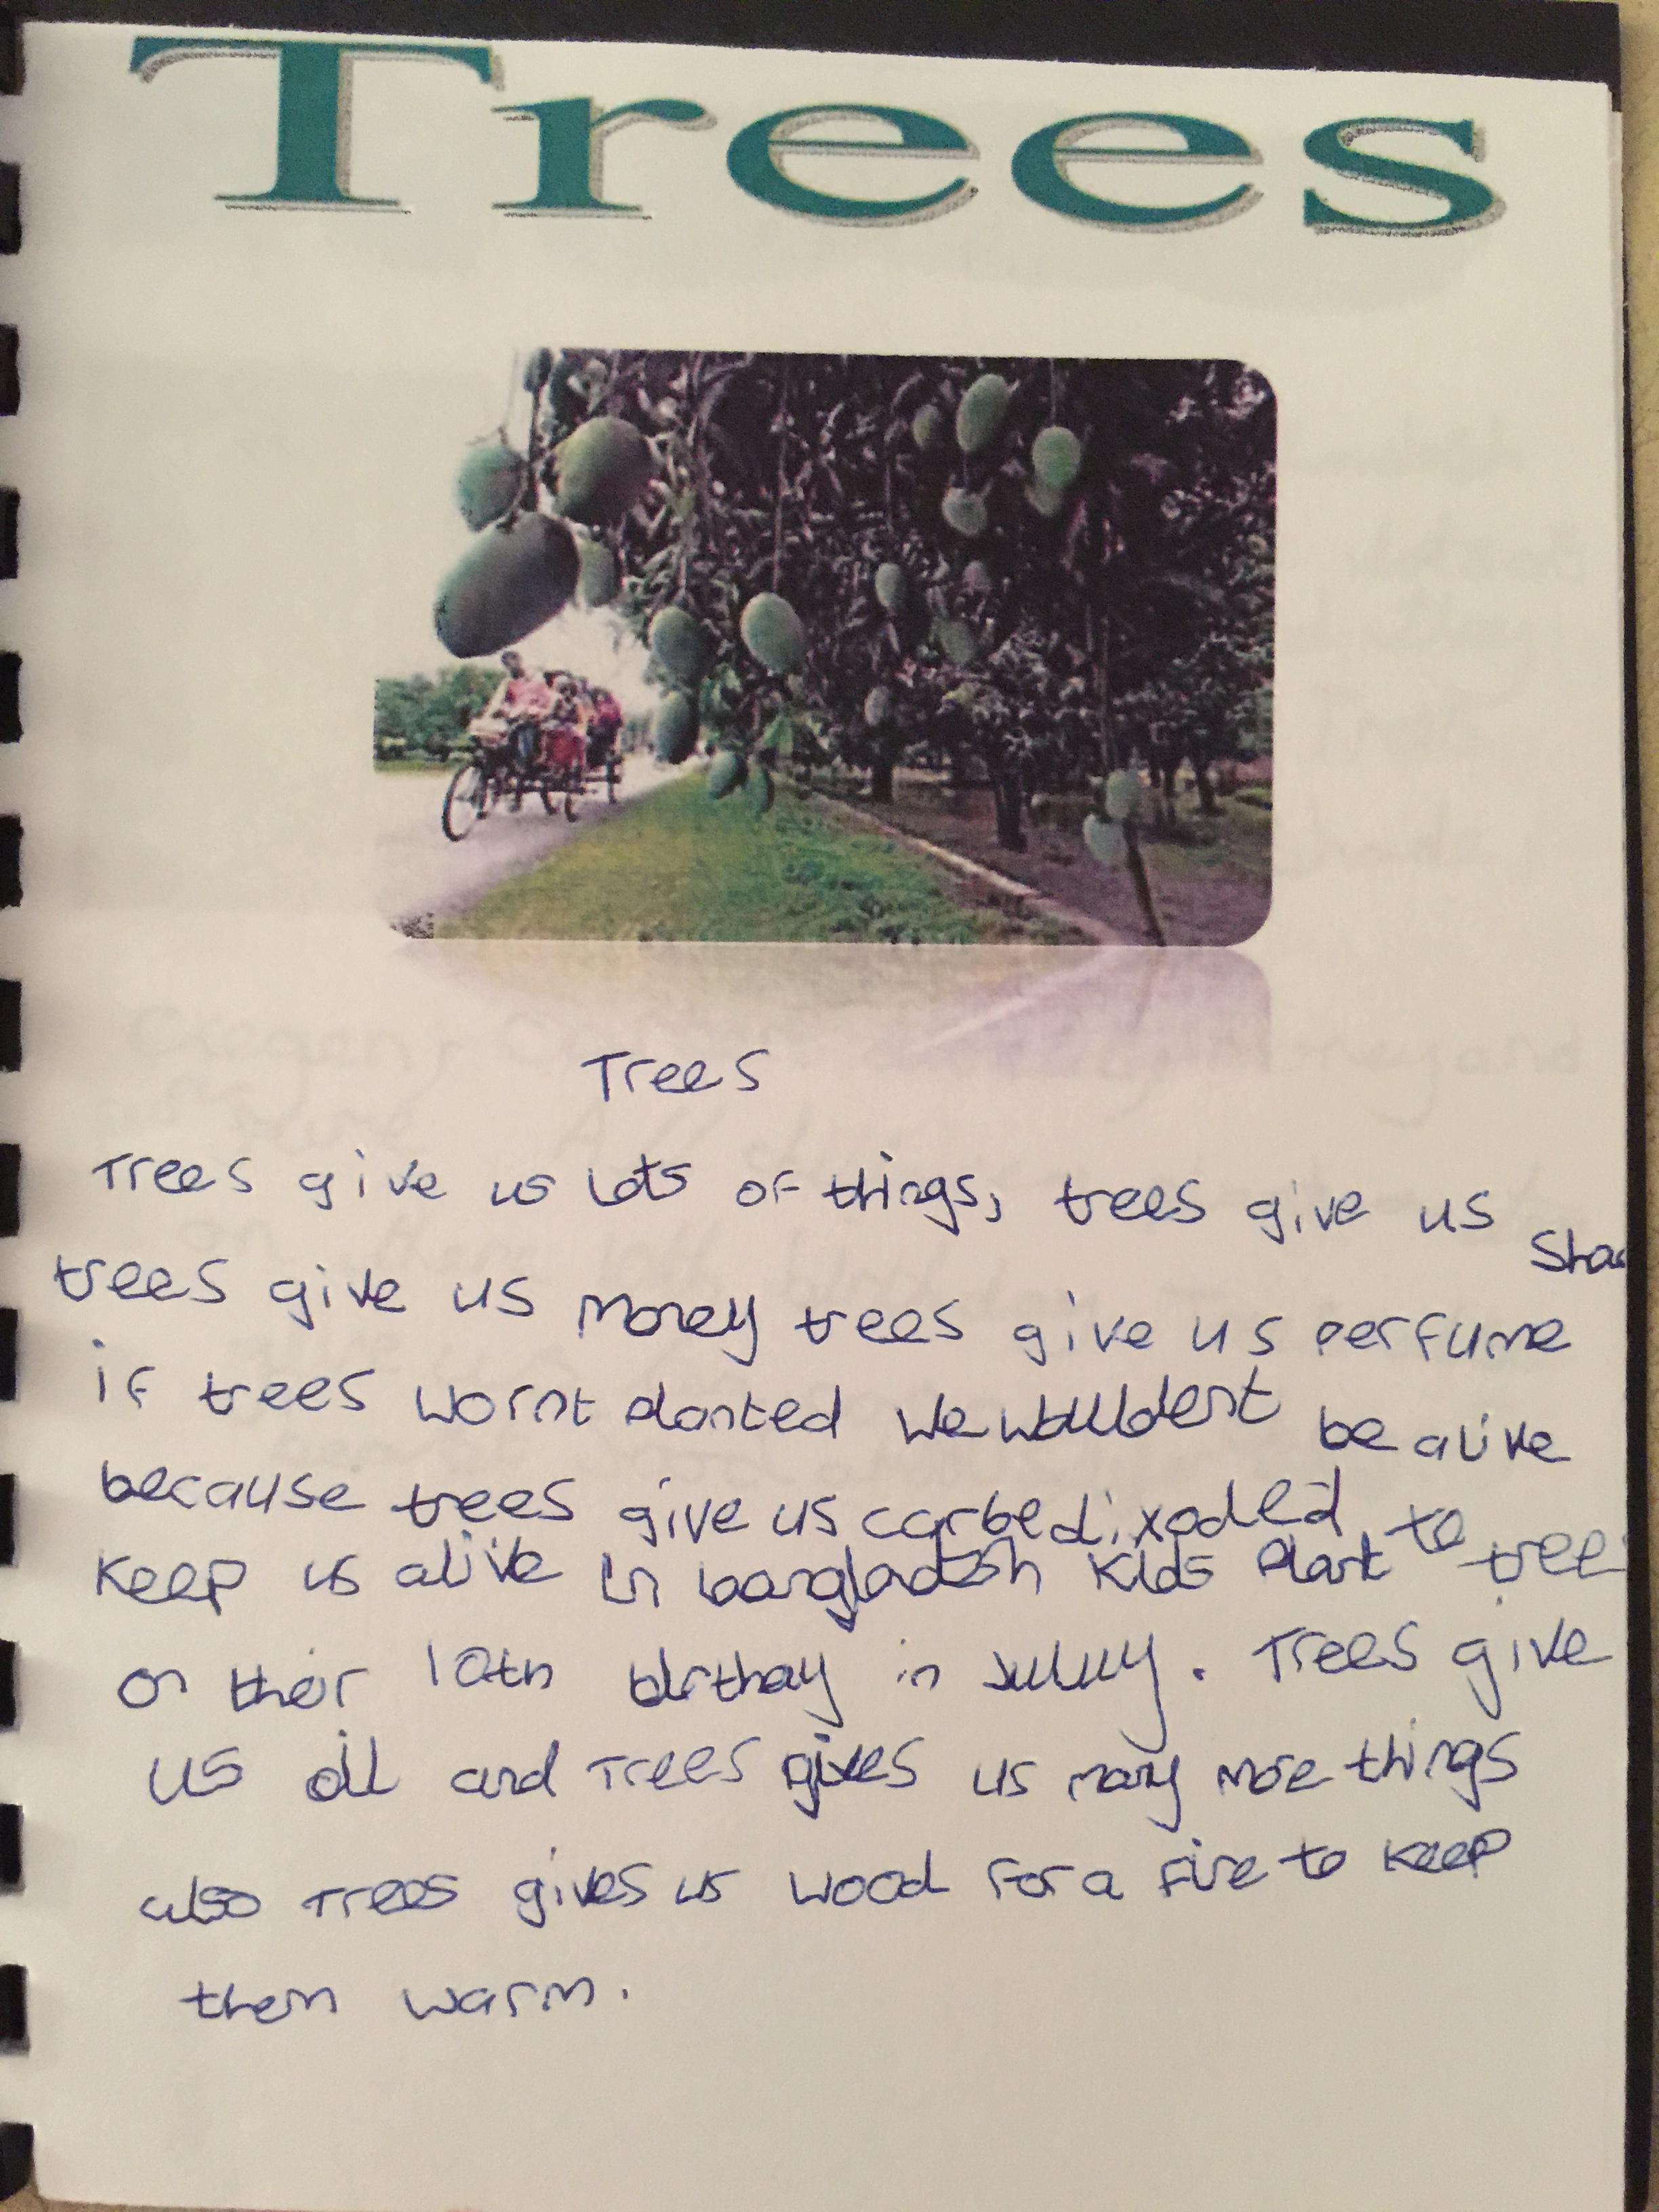 Trees
Trees
Trees give us lots of things, trees give us
trees give us money trees give us perfume
if trees wornt planted we wouldent be alive
because trees give us carbedixoded to
keep us alive in bangladesh kids plant tree
on their 10th birthay in july. Trees give
us oil and Trees gives us many more things
also Trees gives us wood for a fire to keep
them warm.